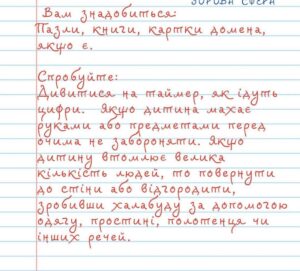 ЗОРОВА СФЕРА
Вам знадобиться:
Пазли, книги, картки домена,
якщо є.
Спробуйте:
Дивитися на таймер, як ідуть
цифри. Якщо дитина махає
руками або предметами перед
очима не забороняти. Якщо
дитину втомлює велика
кількість людей, то повернути
до стіни або відгородити,
зробивши халабуду за допомогою
одягу, простині, полотенця чи
інших речей.